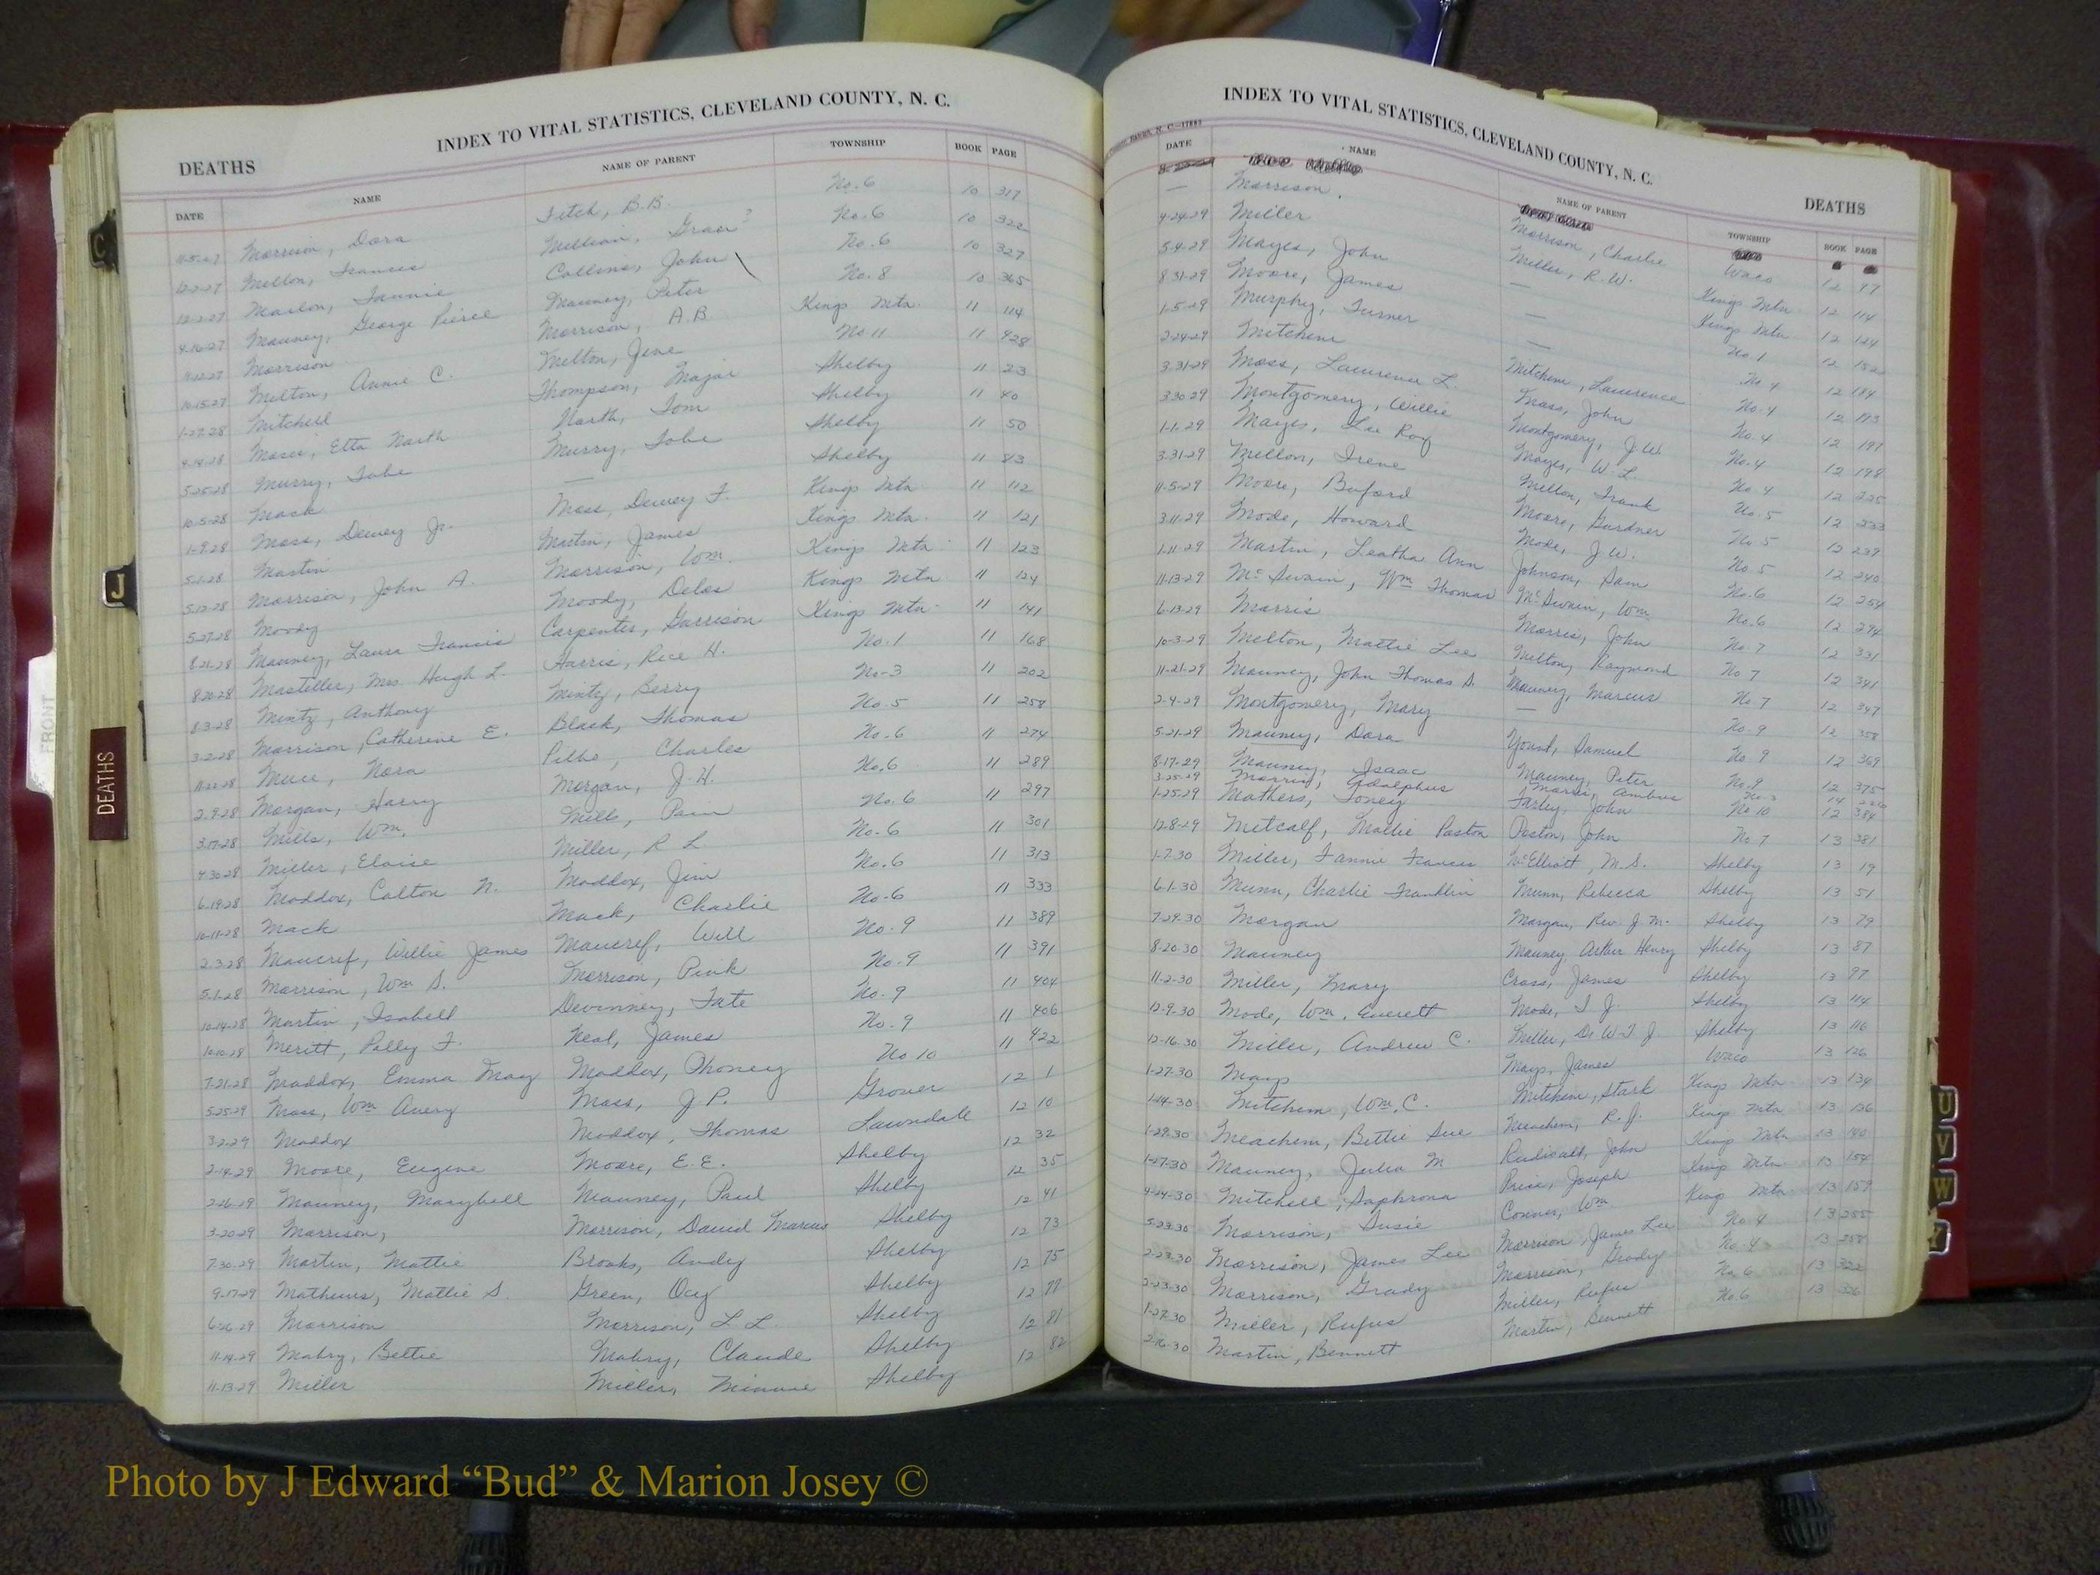 INDEX TO VITAL STATISTICS, CLEVELAND COUNTY, N. C.
DEATHS
DATE NAME NAME OF PARENT TOWNSHIP BOOK PAGE
Morrison, Dora Fitch, B.B. No. 6 10 317
12-2-27 Melton, Frances No. 6 10 322
12-2-27 Fannie Collins, John No. 6 10 327
4-16-27 Mauney, George Pierce Mauney, Peter No. 8 10 365
11-12-27 Morrison Morrison, A.B Kings Mtn. 11 114
10-15-27 Melton, Annie C. Melton, No. 11 11 428
1-27-28 Mitchell Thompson, Major Shelby 11 23
4-14-28 Etta North North, Tom Shelby 11 40
5-25-28 Murry, Tobe Murry, Tobe Shelby 11 50
10-5-28 Mack — Shelby 11 83
1-9-28 Moss, Dewey Jr. Moss, Dewey F. Kings Mtn 11 112
5-1-28 Martin Martin, James Kings Mtn. 11 121
5-12-28 Morrison, John A. Morrison, Wm. Kings Mtn 11 123
5-27-28 Moody Moody, Delos Kings Mtn 11 124
8-21-28 Mauney, Laura Francis Carpenter, Garrison Kings Mtn. 11 141
8-20-28 Masteller, Mrs. Hugh L. Harris, Rece H. No. 1 11 168
8-3-28 Mintz, Anthony Mintz, Berry No-3 11 202
3-2-28 Morrison, Catherine E. Black, Thomas No. 5 11 258
11-22-28 Nora Charles No. 6 11 274
2-9-28 Morgan, Harry Morgan, J. H. No. 6 11 289
3-17-28 Mills, Wm. Mills, No. 6 11 297
4-30-28 Miller, Eloise Miller, R L No. 6 11 301
6-19-28 Maddox, Colton N. Maddox, Jim No. 6 11 313
10-17-28 Mack Mack, Charlie No-6 11 333
2-3-28 Willie James Will No. 9 11 389
5-1-28 Morrison, Wm S. Morrison, Pink No. 9 11 391
10-14-28 Martin, Isabell Devinney, Tate No. 9 11 404
10-10-28 Meritt, Polly F. Neal, James No. 9 11 406
7-21-28 Maddox, Emma May Maddox, Phoney No 10 11 422
5-25-29 Moss, Wm Avery Moss, J P. Grover 12 1
3-2-29 Maddox Maddox, Thomas Lawndale 12 10
2-14-29 Moore, Eugene Moore, E. E. Shelby 12 32
2-26-29 Mauney, Marybell Mauney, Paul Shelby 12 35
3-20-29 Morrison, Morrison, David Marcus Shelby 12 41
7-30-29 Martin, Mattie Brooks, Andy Shelby 12 73
9-17-29 Mathews, Mattie S. Green, Shelby 12 75
6-26-29 Morrison Morrison, L L. Shelby 12 77
11-14-29 Mabry, Bettie Mabry, Claude Shelby 12 81
11-13-29 Miller Miller, Minnie Shelby 12 82
INDEX TO VITAL STATISTICS, CLEVELAND COUNTY, N. C.
DEATHS
DATE NAME NAME OF PARENT TOWNSHIP BOOK PAGE
— Morrison, Morrison, Charlie Waco 12 97
4-24-29 Miller Miller, R. W. Kings Mtn 12 114
5-4-29 Mayes, John — Kings Mtn 12 124
8-31-29 Moore, James — No. 1 12
1-5-29 Murphy, Turner — No. 4 12 184
2-24-29 Mitchem Mitchem, Lawrence No. 4 12 193
3-31-29 Moss, Laurence L. Moss, John No. 4 12 197
3-30-29 Montgomery, Willie Montgomery, J. W. No. 4 12 198
1-1-29 Mayes, Lee Roy Mayes, W. L. No. 4 12 225
3-31-29 Melton, Irene Melton, Frank No. 5 12 233
11-5-29 Moore, Buford Moore, Gardner No. 5 12 239
3-11-29 Mode, Howard Mode, J. W. No 5 12 240
1-11-29 Martin, Leatha Ann Johnson, Sam No. 6 12 254
11-13-29 McSwain, Wm Thomas McSwain, Wm No. 6 12 294
6-13-29 Morris Morris, John No. 7 12 331
10-3-29 Melton, Mattie Lee Melton, Raymond No 7 12 341
11-21-29 Mauney, John Thomas S. Mauney, Marcus No. 7 12 347
2-4-29 Montgomery, Mary — No. 9 12 358
5-21-29 Mauney, Dora Yount, Samuel No. 9 12 369
8-17-29 Mauney, Isaac Mauney, Peter No. 9 12 375
3-25-29 Morris, Adolphus Morris, Ambus 14
1-25-29 Mathers, Toney Farley, John No 10 12 384
12-8-29 Metcalf, Mollie Poston Poston, John No 7 13 381
1-7-30 Miller, Fannie Frances McElliott, M. S. Shelby 13 19
6-1-30 Munn, Charlie Franklin Munn, Rebecca Shelby 13 51
7-29-30 Morgan Morgan, Rev. J. M. Shelby 13 79
8-20-30 Mauney Mauney, Arthur Henry Shelby 13 87
11-2-30 Miller, Mary Cross, James Shelby 13 97
12-9-30 Mode, Wm. Everett Mode, T J. Shelby 13 114
12-16-30 Miller, Andrew C. Miller, Dr W T J Shelby 13 116
1-27-30 Mays Mays, James Waco 13 126
1-14-30 Mitchem, Wm. C. Mitchem, Stark Kings Mtn 13 134
1-29-30 Meachem, Bettie Sue Meachem, R. J. Kings Mtn 13 136
1-27-30 Mauney, Julia M Rudisall, John Kings Mtn 13 140
4-24-30 Mitchell, Saphrona Price, Joseph Kings Mtn 13 154
5-23-30 Morrison, Susie Conner, Wm. Kings Mtn. 13 159
2-23-30 Morrison, James Lee Morrison, James Lee No 4 13 255
2-23-30 Morrison, Grady Morrison, Grady No. 4 13 258
1-27-30 Miller, Rufus Miller, Rufus No. 6 13 322
2-16-30 Martin, Bennett Martin, Bennett No. 6 13 326
C
J
FRONT
DEATHS
U
V
W
Photo by J Edward “Bud” & Marion Josey ©